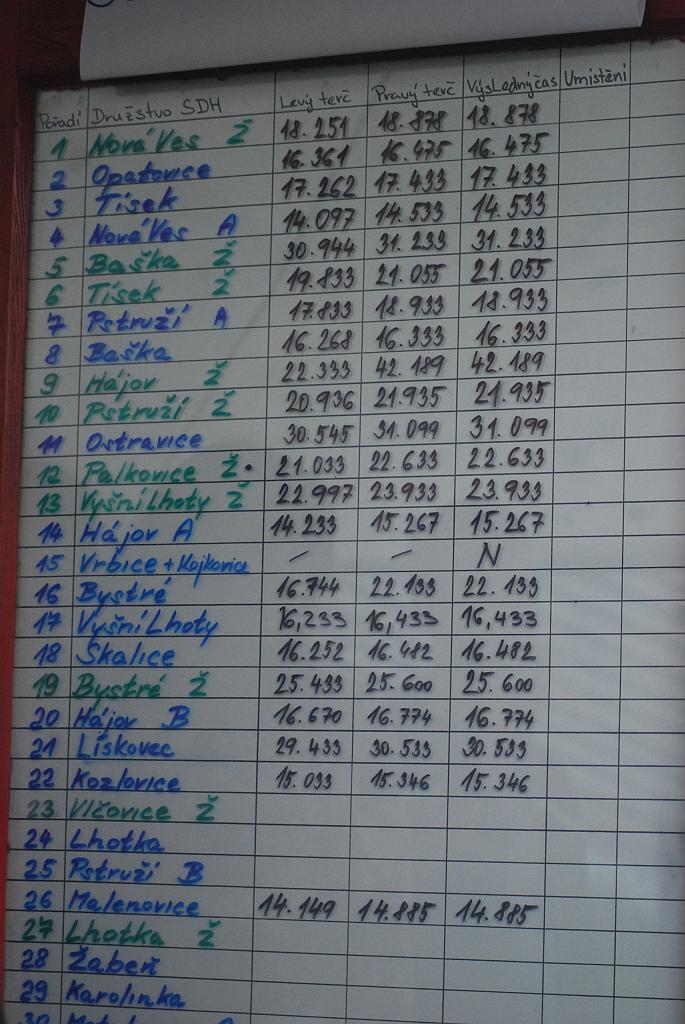 Pořadí Družstvo SDH Levý terč Pravý terč Výsledný čas Umístění
1 Nová Ves Ž 18.251 18.878 18.878
2 Opatovice 16.361 16.475 16.475
3 Tísek 17.262 17.433 17.433
4 Nová Ves A 14.097 14.533 14.533
5 Baška Ž 30.944 31.233 31.233
6 Tísek Ž 19.833 21.055 21.055
7 Pstruží A 17.833 18.933 18.933
8 Baška 16.268 16.333 16.333
9 Hájov Ž 22.333 42.189 42.189
10 Pstruží Ž 20.936 21.935 21.935
11 Ostravice 30.545 31.099 31.099
12 Palkovice Ž. 21.033 22.633 22.633
13 Vyšní Lhoty Ž 22.997 23.933 23.933
14 Hájov A 14.233 15.267 15.267
15 Vrbice + Kojkovice – – N
16 Bystré 16.744 22.133 22.133
17 Vyšní Lhoty 16,233 16,433 16,433
18 Skalice 16.252 16.482 16.482
19 Bystré Ž 25.433 25.600 25.600
20 Hájov B 16.670 16.774 16.774
21 Lískovec 29.433 30.533 30.533
22 Kozlovice 15.033 15.346 15.346
23 Vlčovice Ž
24 Lhotka
25 Pstruží B
26 Malenovice 14.149 14.885 14.885
27 Lhotka Ž
28 Žabeň
29 Karolinka
30